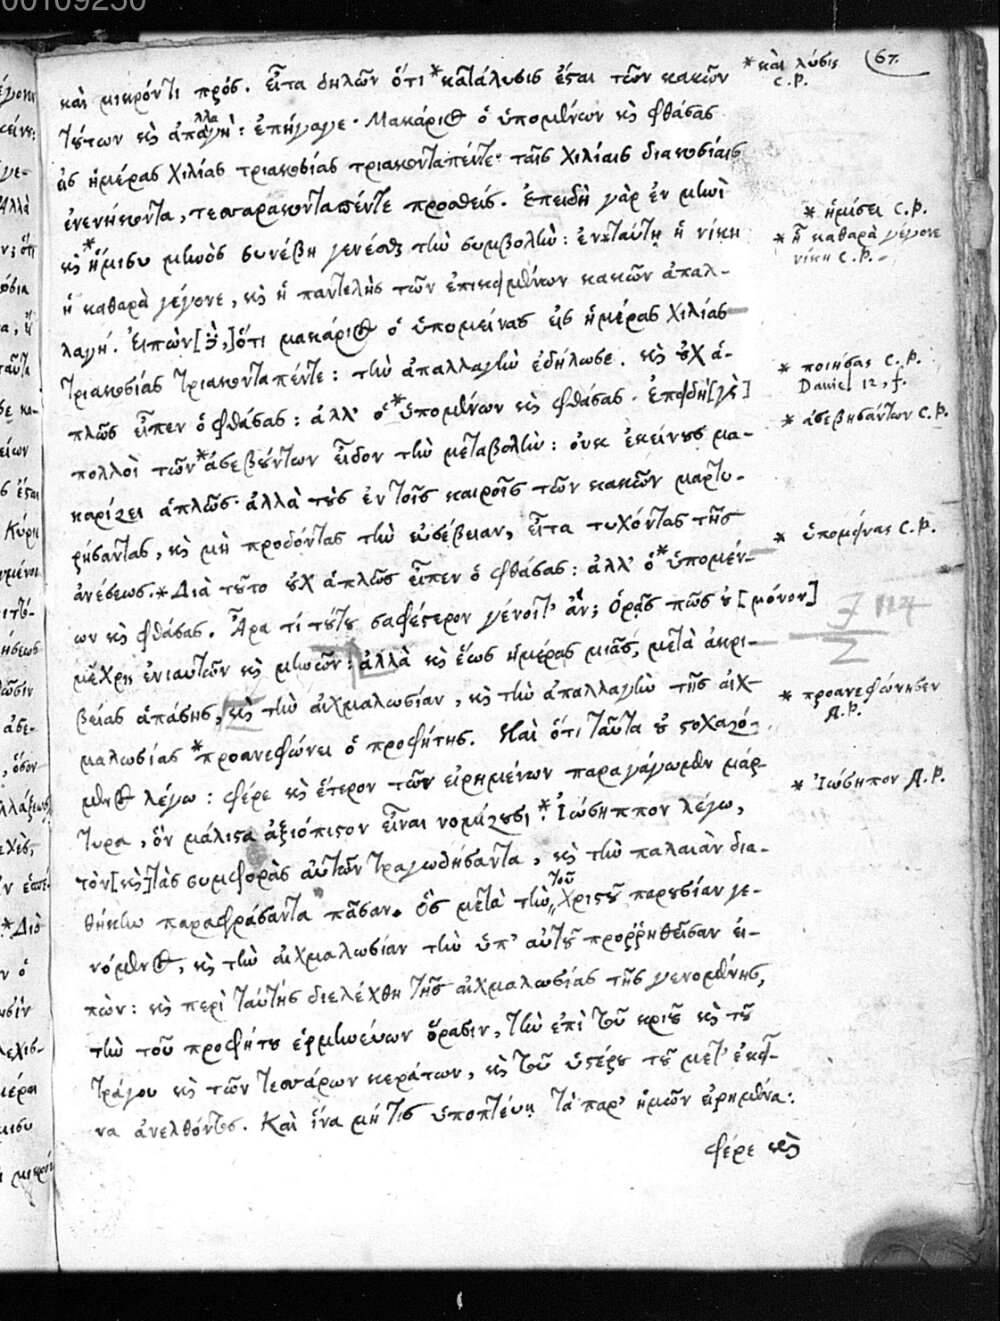 00109250
67.
καὶ μικρόν τι πρός. εἶτα δηλῶν ὅτι *κατάλυσις ἔσται τῶν κακῶν
*καὶ λύσις C.P.
τούτων κὶ ἀπαλλαγὴ: ἐπήγαγε. Μακάριος ὁ ὑπομένων κὶ φθάσας
εἰς ἡμέρας χιλίας τριακοσίας τριακονταπέντε· ταῖς χιλίαις διακοσίαις
ἐνενήκοντα, τεσσαρακονταπέντε προσθείς. ἐπειδὴ γὰρ ἐν μηνὶ
* ἡμίσει C.P.
κὶ *ἥμισυ μηνὸς συνέβη γενέσθαι τὴν συμβολὴν: ἐνταύτῃ ἡ νίκη
* ἡ καθαρὰ γέγονε νίκη C.P.-
ἡ καθαρὰ γέγονε, κὶ ἡ παντελὴς τῶν ἐπικειμένων κακῶν ἀπαλ-
λαγή. Εἰπὼν [δὲ,] ὅτι μακάριος ὁ ὑπομείνας εἰς ἡμέρας χιλίας
τριακοσίας τριακονταπέντε: τὴν ἀπαλλαγὴν ἐδήλωσε. κὶ οὐχ ἁ-
* ποιήσας C.P.
Daniel 12, f.
πλῶς εἶπεν ὁ φθάσας: ἀλλ' ὁ *ὑπομένων κὶ φθάσας. ἐπειδὴ [γὰρ]
* ἀσεβησάντων C.P.
πολλοὶ τῶν *ἀσεβούντων εἶδον τὴν μεταβολὴν: οὐκ ἐκείνους μα-
καρίζει ἁπλῶς· ἀλλὰ τοὺς ἐν τοῖς καιροῖς τῶν κακῶν μαρτυ-
ρήσαντας, κὶ μὴ προδόντας τὴν εὐσέβειαν, εἶτα τυχόντας τῆς
* ὑπομείνας C.P.
ἀνέσεως.* Διὰ τοῦτο οὐχ ἁπλῶς εἶπεν ὁ φθάσας: ἀλλ' ὁ *ὑπομέν-
ων κὶ φθάσας. Ἆρα τί τούτου σαφέστερον γένοιτ' ἄν; ὁρᾷς πῶς οὐ [μόνον]
μέχρι ἐνιαυτῶν κὶ μηνῶν: ἀλλὰ κὶ ἕως ἡμέρας μιᾶς, μετὰ ἀκρι-
βείας ἁπάσης, κὶ τὴν αἰχμαλωσίαν, κὶ τὴν ἀπαλλαγὴν τῆς αἰχ-
* προανεφώνησεν A.P.
μαλωσίας *προανεφώνει ὁ προφήτης. Καὶ ὅτι ταῦτα οὐ στοχαζό-
μενος λέγω: φέρε κὶ ἕτερον τῶν εἰρημένων παραγάγωμεν μάρ-
* Ἰώσηπον A.P.
τυρα, ὃν μάλιστα ἀξιόπιστον εἶναι νομίζουσι *: Ἰώσηππον λέγω,
τὸν [κὶ] τὰς συμφορὰς αὐτῶν τραγῳδήσαντα, κὶ τὴν παλαιὰν δια-
θήκην παραφράσαντα πᾶσαν. Ὃς μετὰ τὴν τοῦ Χριστοῦ παρουσίαν γε-
νόμενος, κὶ τὴν αἰχμαλωσίαν τὴν ὑπ' αὐτοῦ προῤῥηθεῖσαν εἰ-
πών: κὶ περὶ ταύτης διελέχθη τῆς αἰχμαλωσίας τῆς γενομένης,
τὴν τοῦ προφήτου ἑρμηνεύων ὅρασιν, τὴν ἐπὶ τοῦ κριοῦ κὶ τοῦ
τράγου κὶ τῶν τεσσάρων κεράτων, κὶ τοῦ ὑστέρου τοῦ μετ' ἐκεῖ-
να ἀνελθόντος. Καὶ ἵνα μή τις ὑποπτεύῃ τὰ παρ' ἡμῶν εἰρημένα:
φέρε κὶ